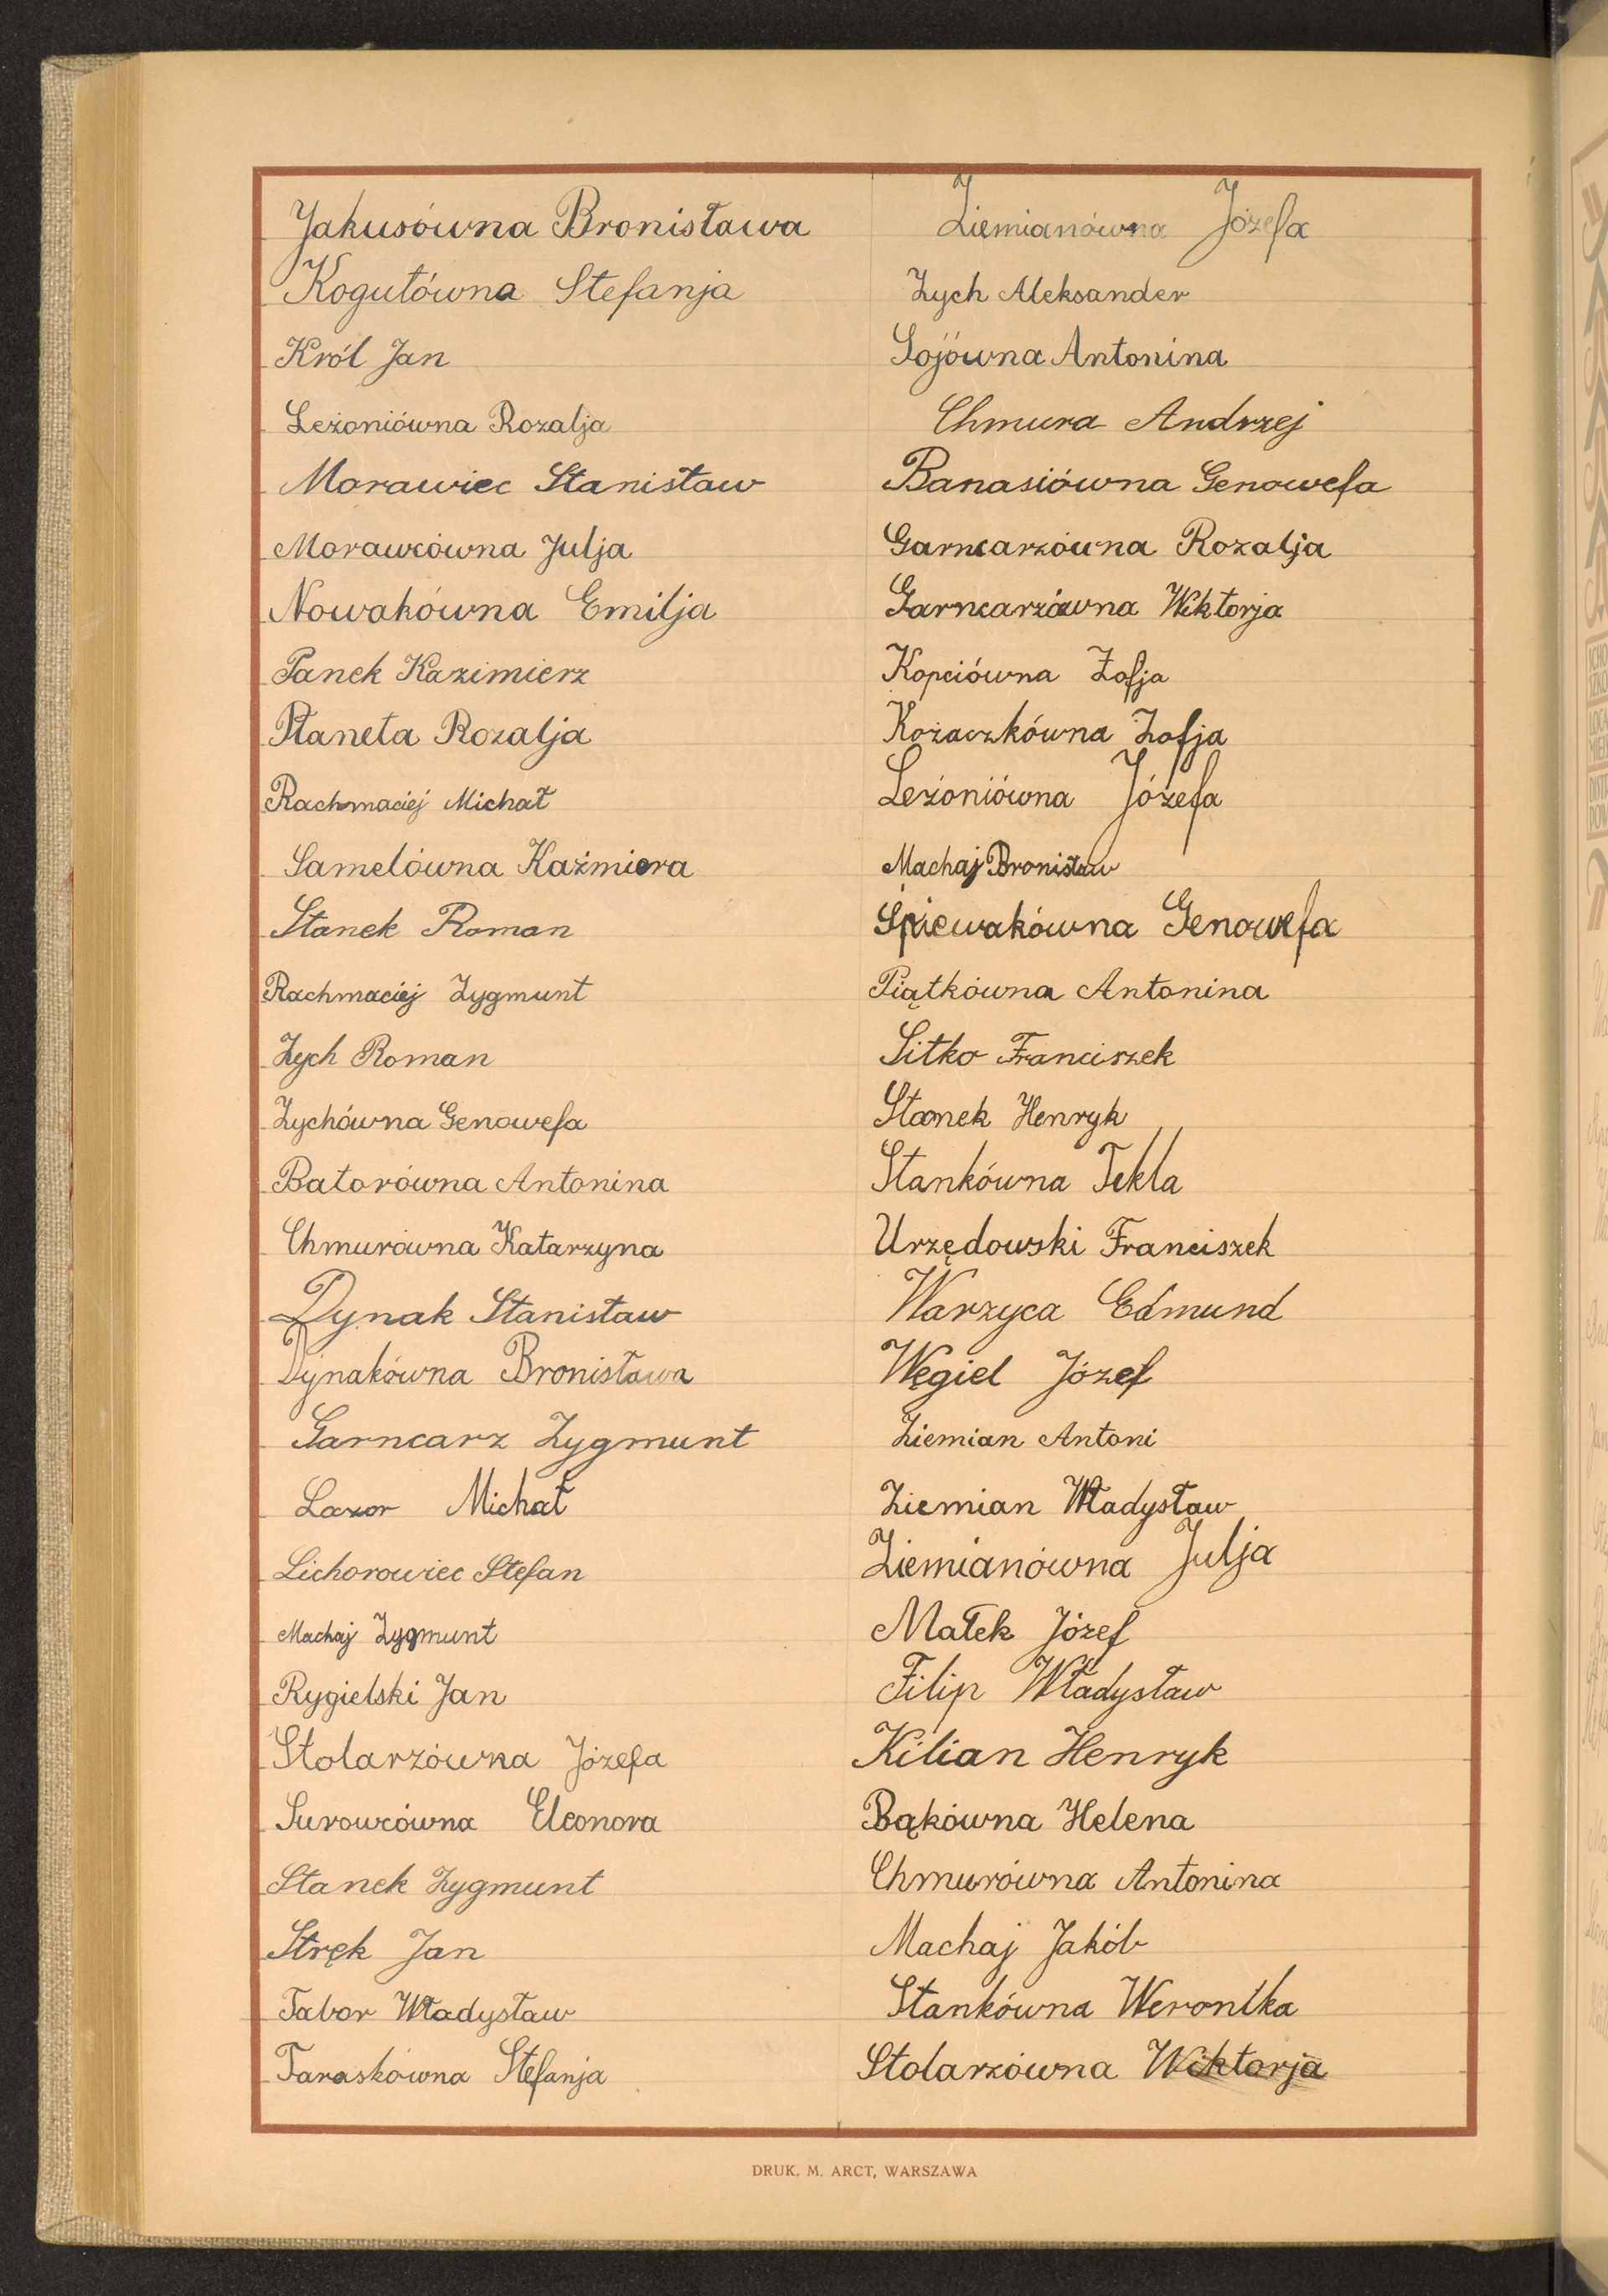 Jakusówna Bronisława
Kogutówna Stefanja
Król Jan
Leżoniówna Rozalja
Morawiec Stanisław
Morawcówna Julja
Nowakówna Emilja
Panek Kazimierz
Płaneta Rozalja
Rachmaciej Michał
Samelówna Kaźmiera
Stanek Roman
Rachmaciej Zygmunt
Zych Roman
Zychówna Genowefa
Batorówna Antonina
Chmurówna Katarzyna
Dynak Stanisław
Dynakówna Bronisława
Garncarz Zygmunt
Lazor Michał
Lichorowiec Stefan
Machaj Zygmunt
Rygielski Jan
Stolarzówna Józefa
Surowcówna Eleonora
Stanek Zygmunt
Stręk Jan
Tabor Władysław
Taraskówna Stefanja
Ziemianówna Józefa
Zych Aleksander
Sojówna Antonina
Chmura Andrzej
Banasiówna Genowefa
Garncarzówna Rozalja
Garncarzówna Wiktorja
Kopciówna Zofja
Kozaczkówna Zofja
Leżoniówna Józefa
Machaj Bronisław
Śpiewakówna Genowefa
Piątkówna Antonina
Sitko Franciszek
Stanek Henryk
Stankówna Tekla
Urzędowski Franciszek
Warzyca Edmund
Węgiel Józef
Ziemian Antoni
Ziemian Władysław
Ziemianówna Julja
Małek Józef
Filip Władysław
Kilian Henryk
Bąkówna Helena
Chmurówna Antonina
Machaj Jakób
Stankówna Weronika
Stolarzówna Wiktorja
DRUK. M. ARCT, WARSZAWA